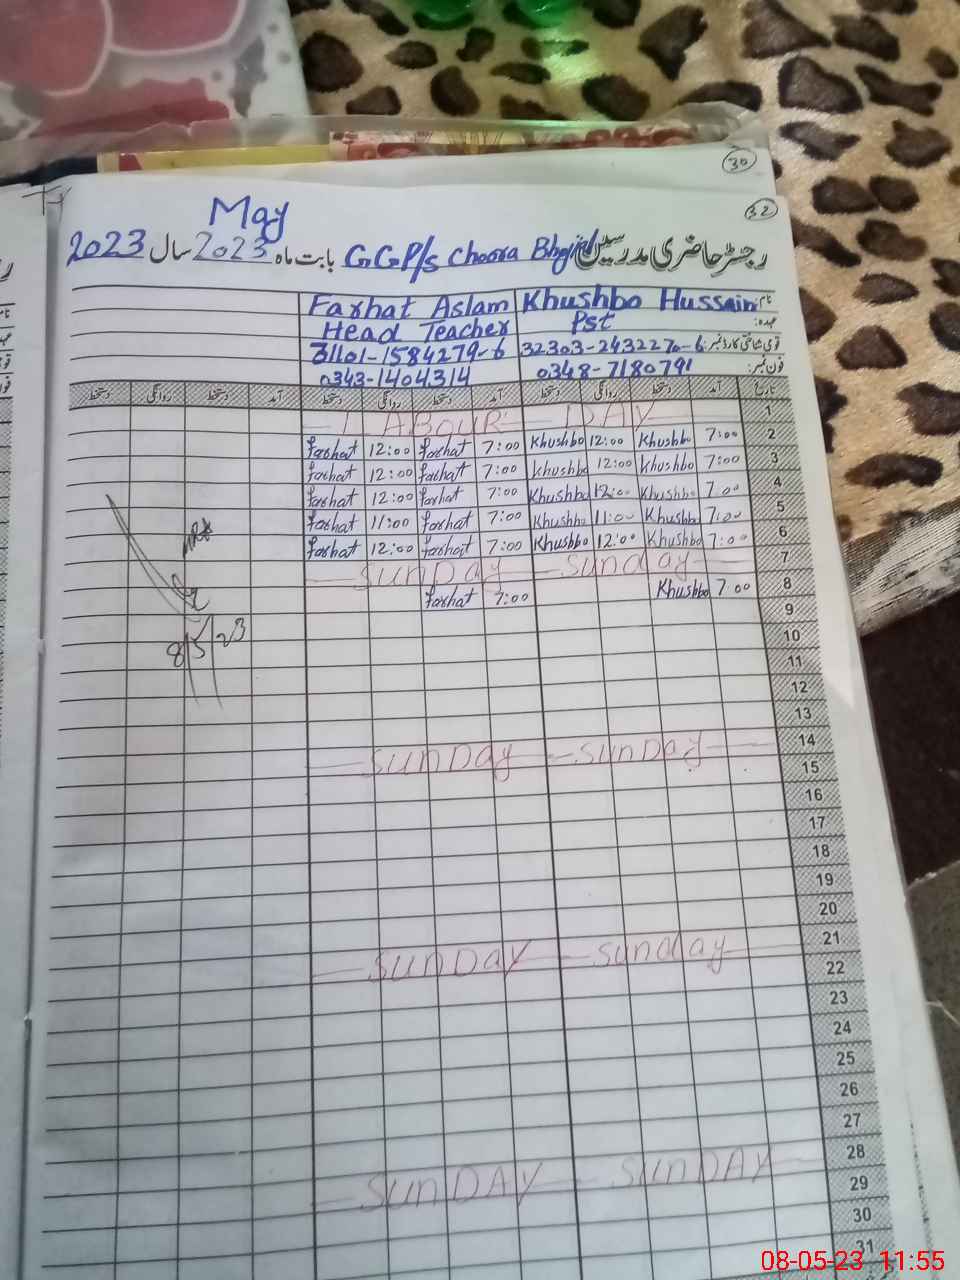 30
32
May
رجسٹر حاضری مدرسین GGP/s Choora بابت ماہ 2023 سال 2023
نام: Khushbo Hussain Farhat Aslam
عہدہ: Pst Head Teacher
قومی شناختی کارڈ نمبر: 32303-2432270-6 31101-1584279-6
فون نمبر: 0348-7180791 0343-1404314
تاریخ آمد دستخط روانگی دستخط آمد دستخط روانگی دستخط آمد دستخط روانگی دستخط
1 LABOUR DAY
2 7:00 Khushbo 12:00 Khushbo 7:00 Farhat 12:00 Farhat
3 7:00 Khushbo 12:00 Khushbo 7:00 Farhat 12:00 Farhat
4 7:00 Khushbo 12:00 Khushbo 7:00 Farhat 12:00 Farhat
5 7:00 Khushbo 11:00 Khushbo 7:00 Farhat 11:00 Farhat
6 7:00 Khushbo 12:00 Khushbo 7:00 Farhat 12:00 Farhat
7 Sunday Sunday
8 7:00 Khushbo 7:00 Farhat
9
8/5/23
10
11
12
13
14 SunDay SunDay
15
16
17
18
19
20
21 Sunday SunDay
22
23
24
25
26
27
28 SunDAY SunDAY
29
30
31
08-05-23 11:55